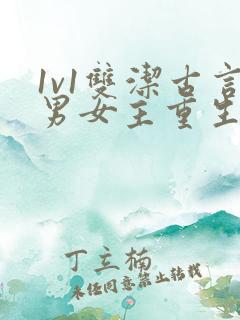 1v1雙潔古言
男女主重生
丁立楠
未經同意禁止轉載